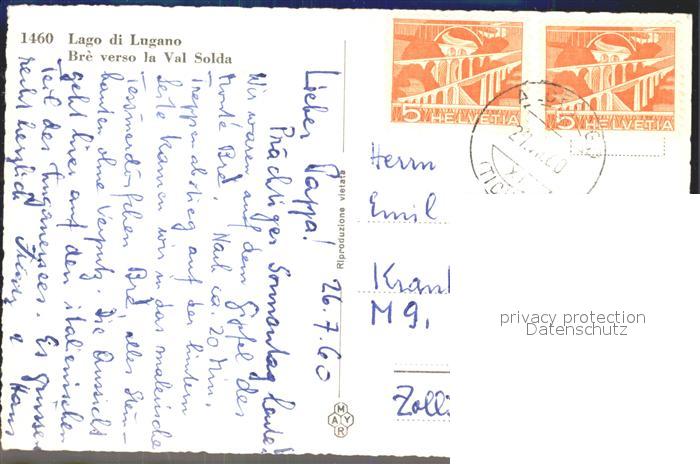 1460 Lago di Lugano
Brè verso la Val Solda
Lieber Pappa! 26.7.60
Prächtiger Sonnentag heute!
Wir waren auf dem Gipfel des
Monte Brè. Nach ca. 20 Min.
Treppenabstieg auf der hintern
Seite kamen wir in das malerische
Tessinerdörfchen Brè, alles Stein-
bauten ohne Verputz. Die Aussicht
geht hier auf den italienischen
Teil des Luganersees. Es grüssen
recht herzlich
Hans
Riproduzione vietata
MAYR
5 HELVETIA
5 HELVETIA
Herrn
Emil
M9,
Zolli
privacy protection
Datenschutz